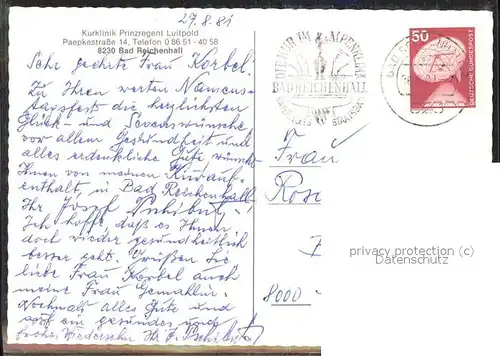 27.8.81
Kurklinik Prinzregent Luitpold
Paepkestraße 14, Telefon 0 86 51 - 40 58
8230 Bad Reichenhall
Sehr geehrte Frau Korbel!
Zu Ihrem werten Namens-
tagsfest die herzlichsten
Glück- und Segenswünsche
vor allem Gesundheit und
alles erdenkliche Gute wünscht
Ihnen von meinem Kurauf-
enthalt, in Bad Reichenhall
Ihr Josef
Ich hoffe, daß es Ihnen
doch wieder gesundheitlich
besser geht. Grüßen Sie
liebe Frau Korbel auch
meine Frau Gemahlin.
Nochmals alles Gute und
auf ein gesundes und
frohes Wiedersehn Ihr J.
IM ALPENKLIMA
BAD REICHENHALL
50
DEUTSCHE BUNDESPOST
Frau
8000
privacy protection (c)
www.